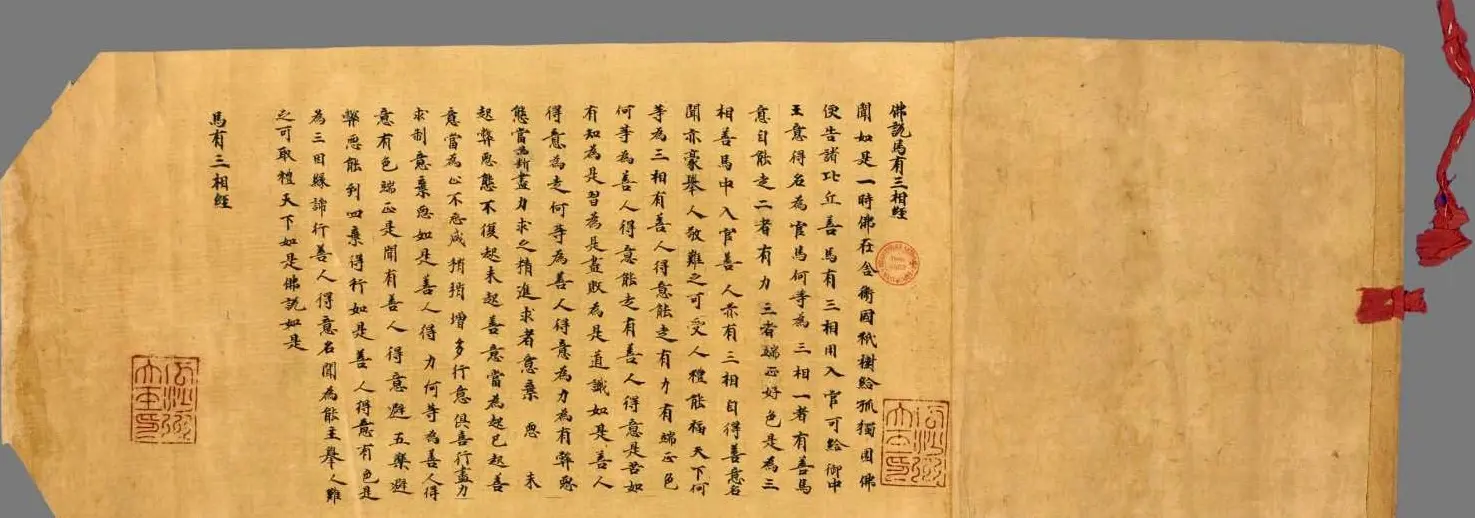 佛說馬有三相經
聞如是一時佛在舍衛國祇樹給孤獨園佛
便告諸比丘善馬有三相用入官可給御中
王意得名為官馬何等為三相一者有善馬
意自能走二者有力三者端正好色是為三
相善馬中入官善人亦有三相自得善意名
聞亦豪舉人敬難之可受人禮能福天下何
等為三相有善人得意能走有力有端正色
何等為善人得意能走有善人得意是苦如
有知為是習為是盡敗為是道識如是善人
得意為走何等為善人得意為力為有弊惡
態當為斷盡力求之精進求者意棄惡未
起弊惡態不復起未起善意當為起已起善
意當為止不忘咸稍稍增多行意俱喜行盡力
求制意棄惡如是善人得力何等為善人得
意有色端正是聞有善人得意避五樂避
弊惡能到四棄得行如是善人得意有色是
為三因緣諦行善人得意名聞為能主舉人難
之可取禮天下如是佛說如是
馬有三相經
瓜沙州大王印
瓜沙州大王印